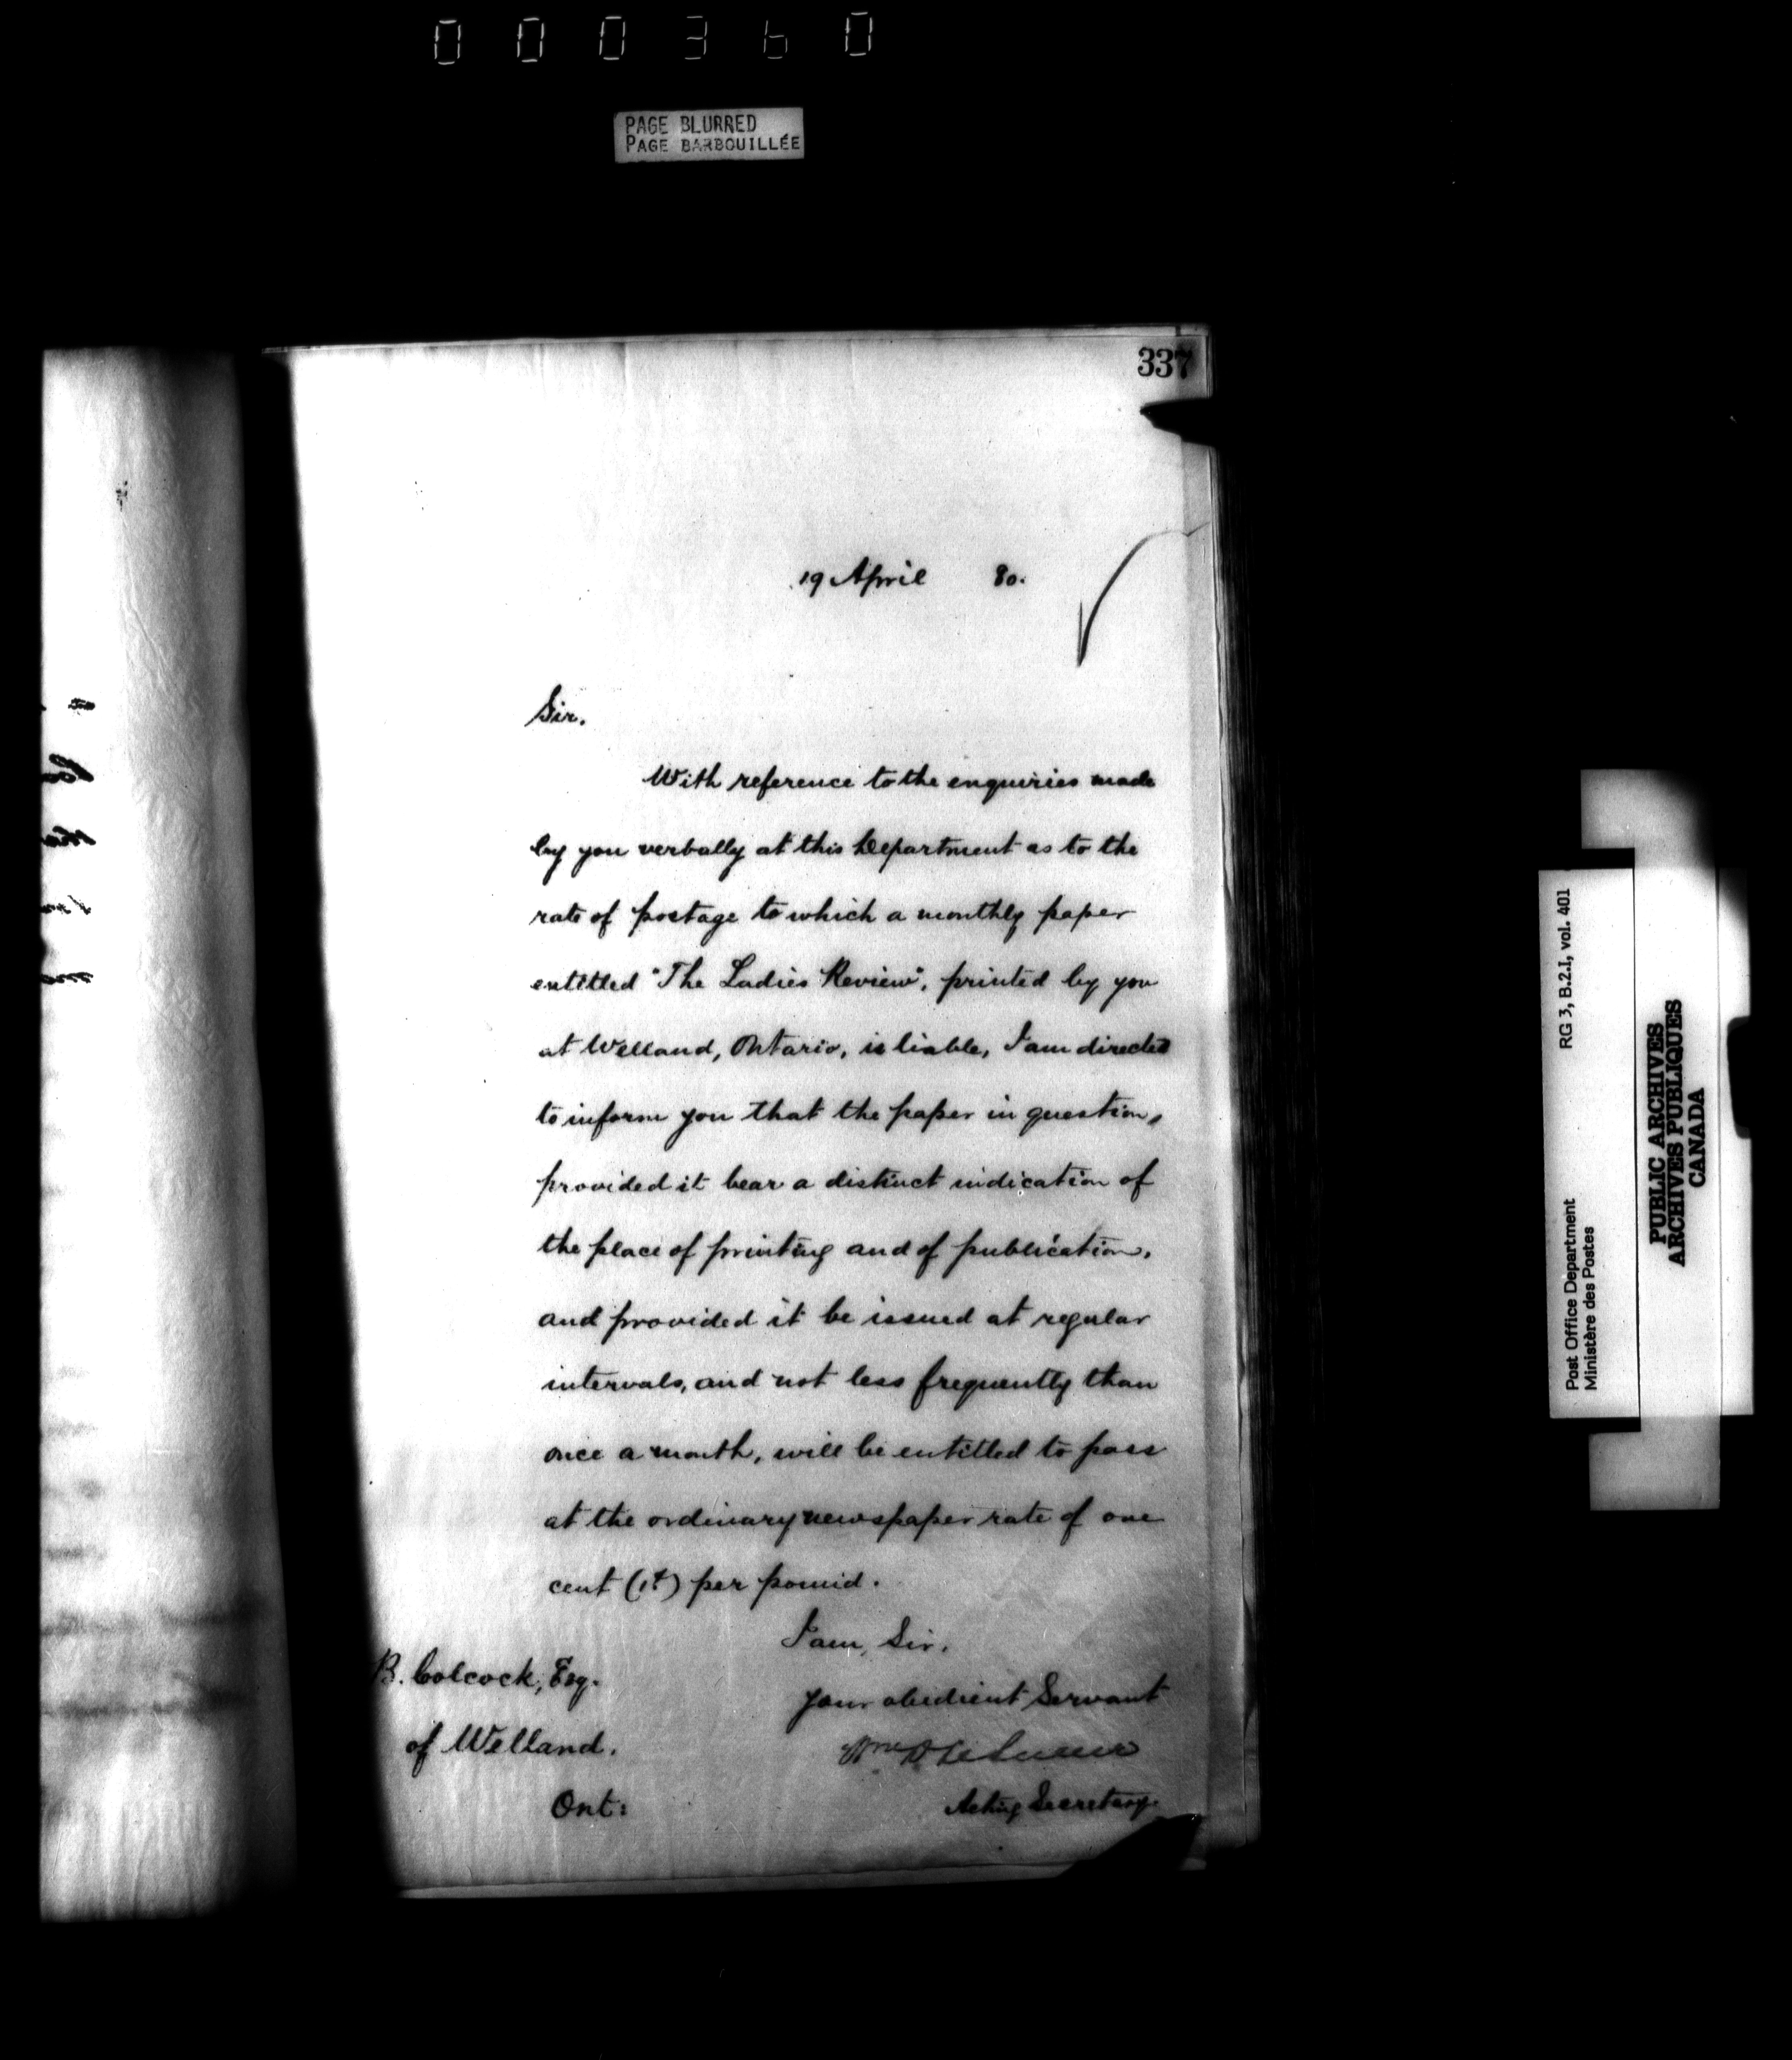 000360
PAGE BLURRED
PAGE BARBOUILLÉE
337
19 April 80.
Sir.
With reference to the enquiries made
by you verbally at this Department as to the
rate of postage to which a monthly paper
entitled "The Ladies Review", printed by you
at Welland, Ontario, is liable, I am directed
to inform you that the paper in question,
provided it bear a distinct indication of
the place of printing and of publication,
and provided it be issued at regular
intervals, and not less frequently than
once a month, will be entitled to pass
at the ordinary newspaper rate of one
cent (1¢) per pound.
I am, Sir.
Your obedient Servant
Wm D LeSueur
Acting Secretary.
B. Colcock, Esq.
of Welland.
Ont:
RG 3, B.2.I, vol. 401
Post Office Department
Ministère des Postes
PUBLIC ARCHIVES
ARCHIVES PUBLIQUES
CANADA